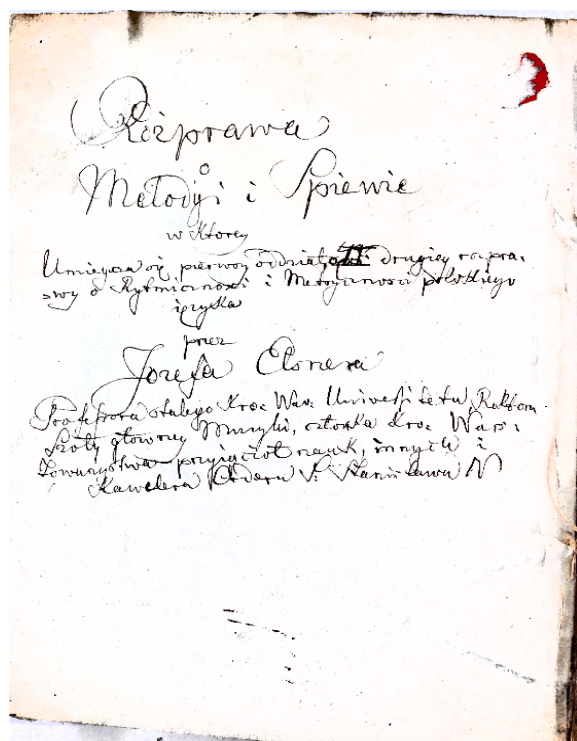 Rozprawa
o
Melodyi i Spiewie
w Ktorey
Umieszcza się pierwszy oddział drugiey rozpra-
-wy o Rytmicznosci i Metryczności polskiego
ięzyka
przez
Jozefa Elsnera
Professora stałego Kro: War: Uniwersitetu, Rektora
Szkoły głowney Muzyki, członka Kro: Wars:
Towarzystwa przyiaciół nauk, innych i
Kawalera Orderu S. Stanisława